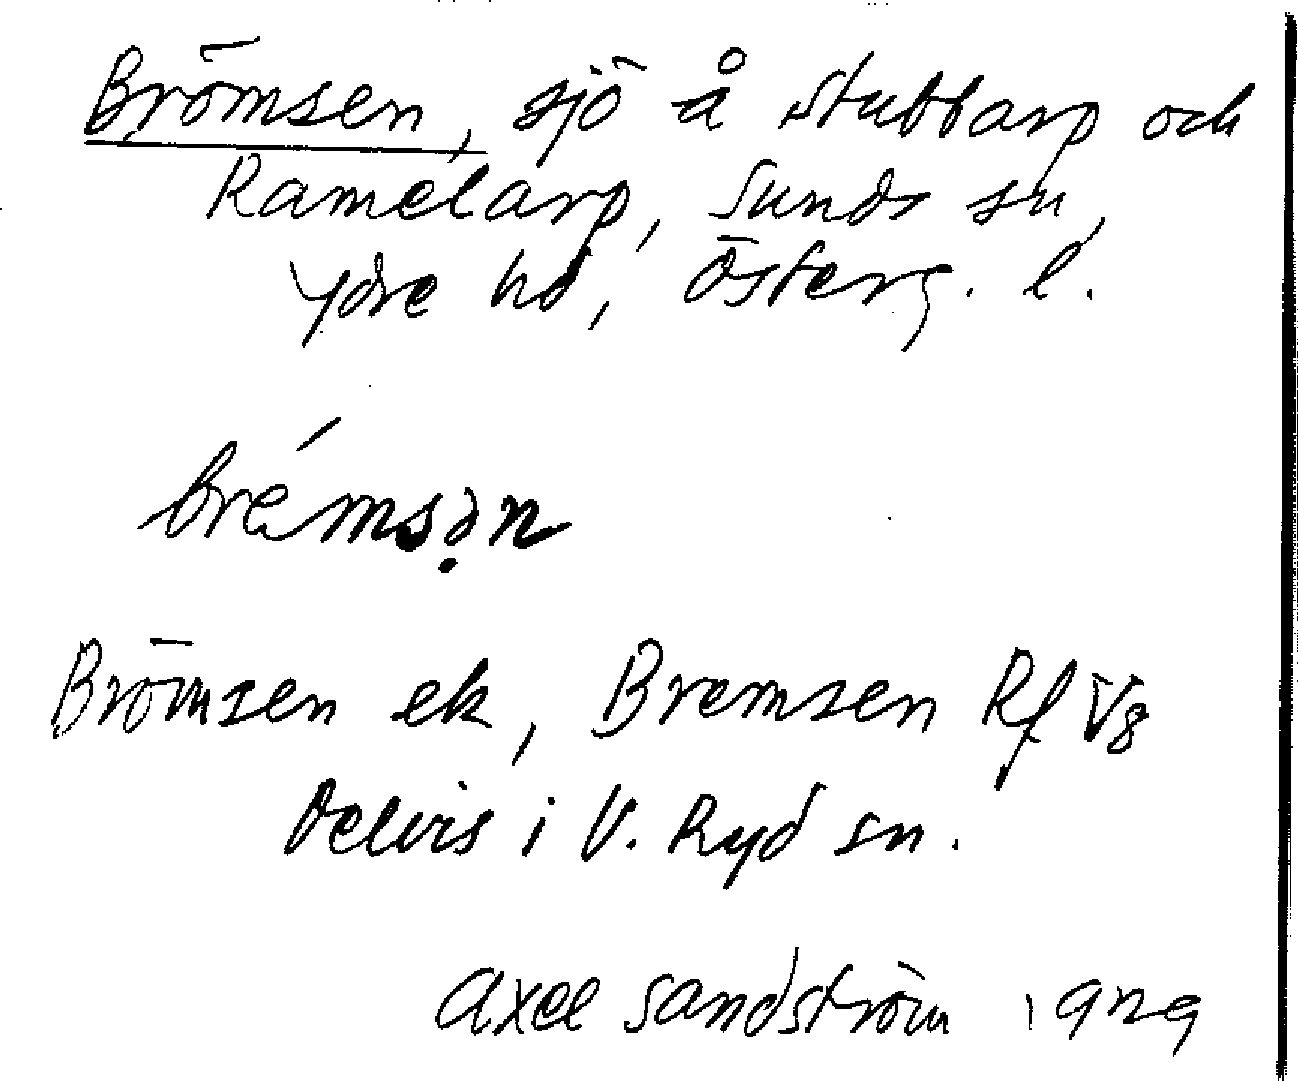 Brömsen, sjö å Stubbarp och
Ramelarp, Sunds sn,
Ydre hd, Österg. l.
brémsən
Brömsen ek, Bremsen Rf V8
Delvis i V. Ryd sn.
Axel Sandström 1929